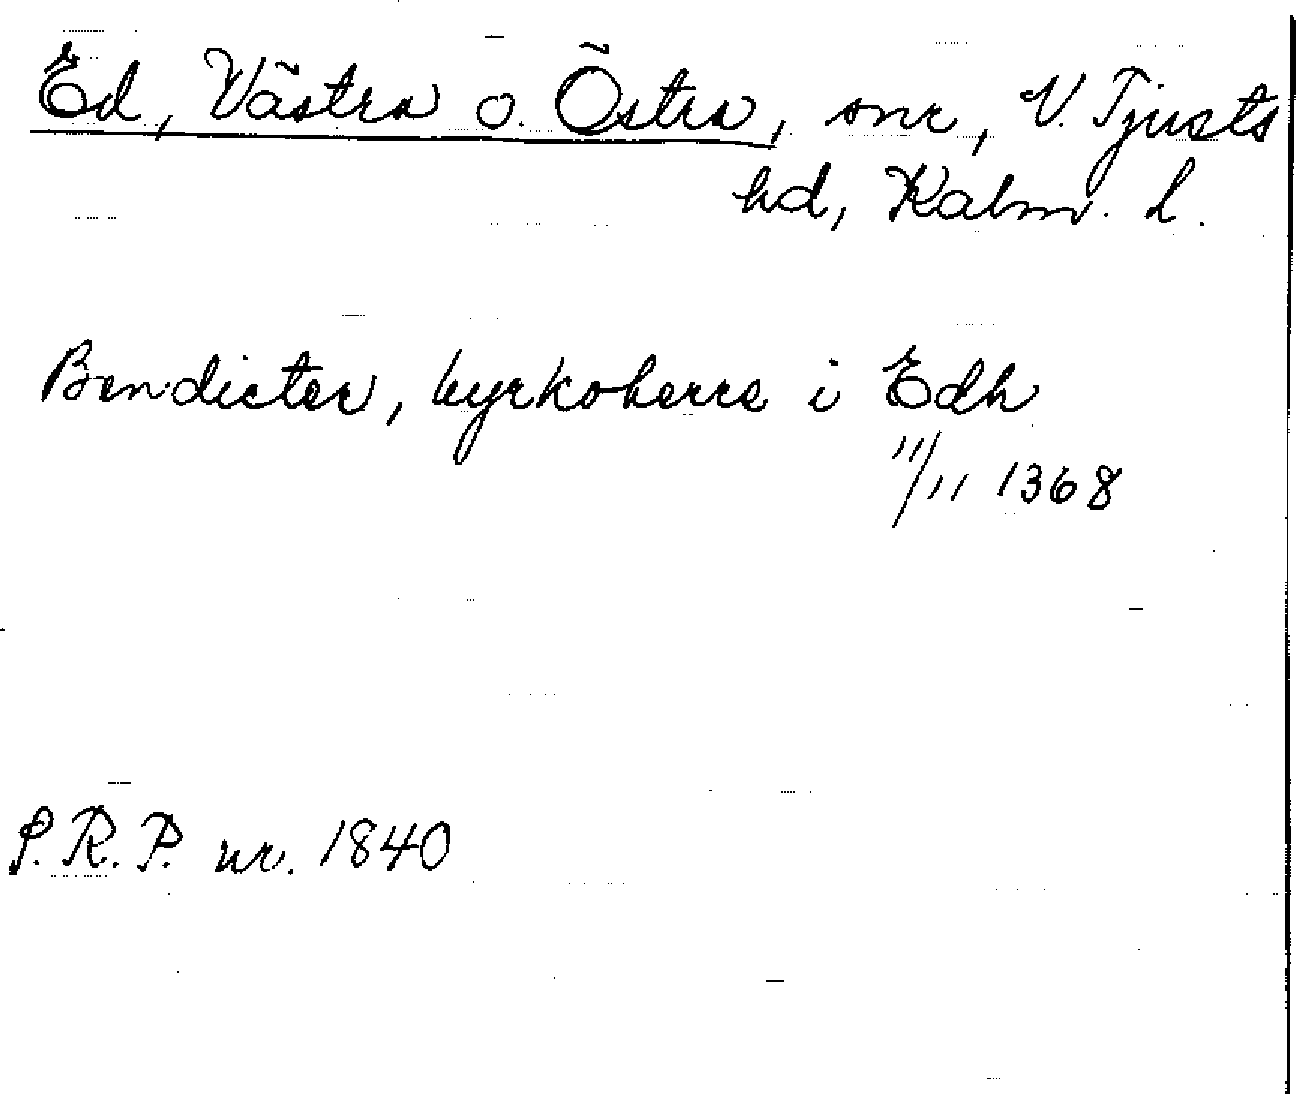 Ed, Västra o. Östra, snr, V. Tjusts
hd, Kalm. l.
Bendicter, kyrkoherre i Edh
11/11 1368
S.R.P. nr. 1840